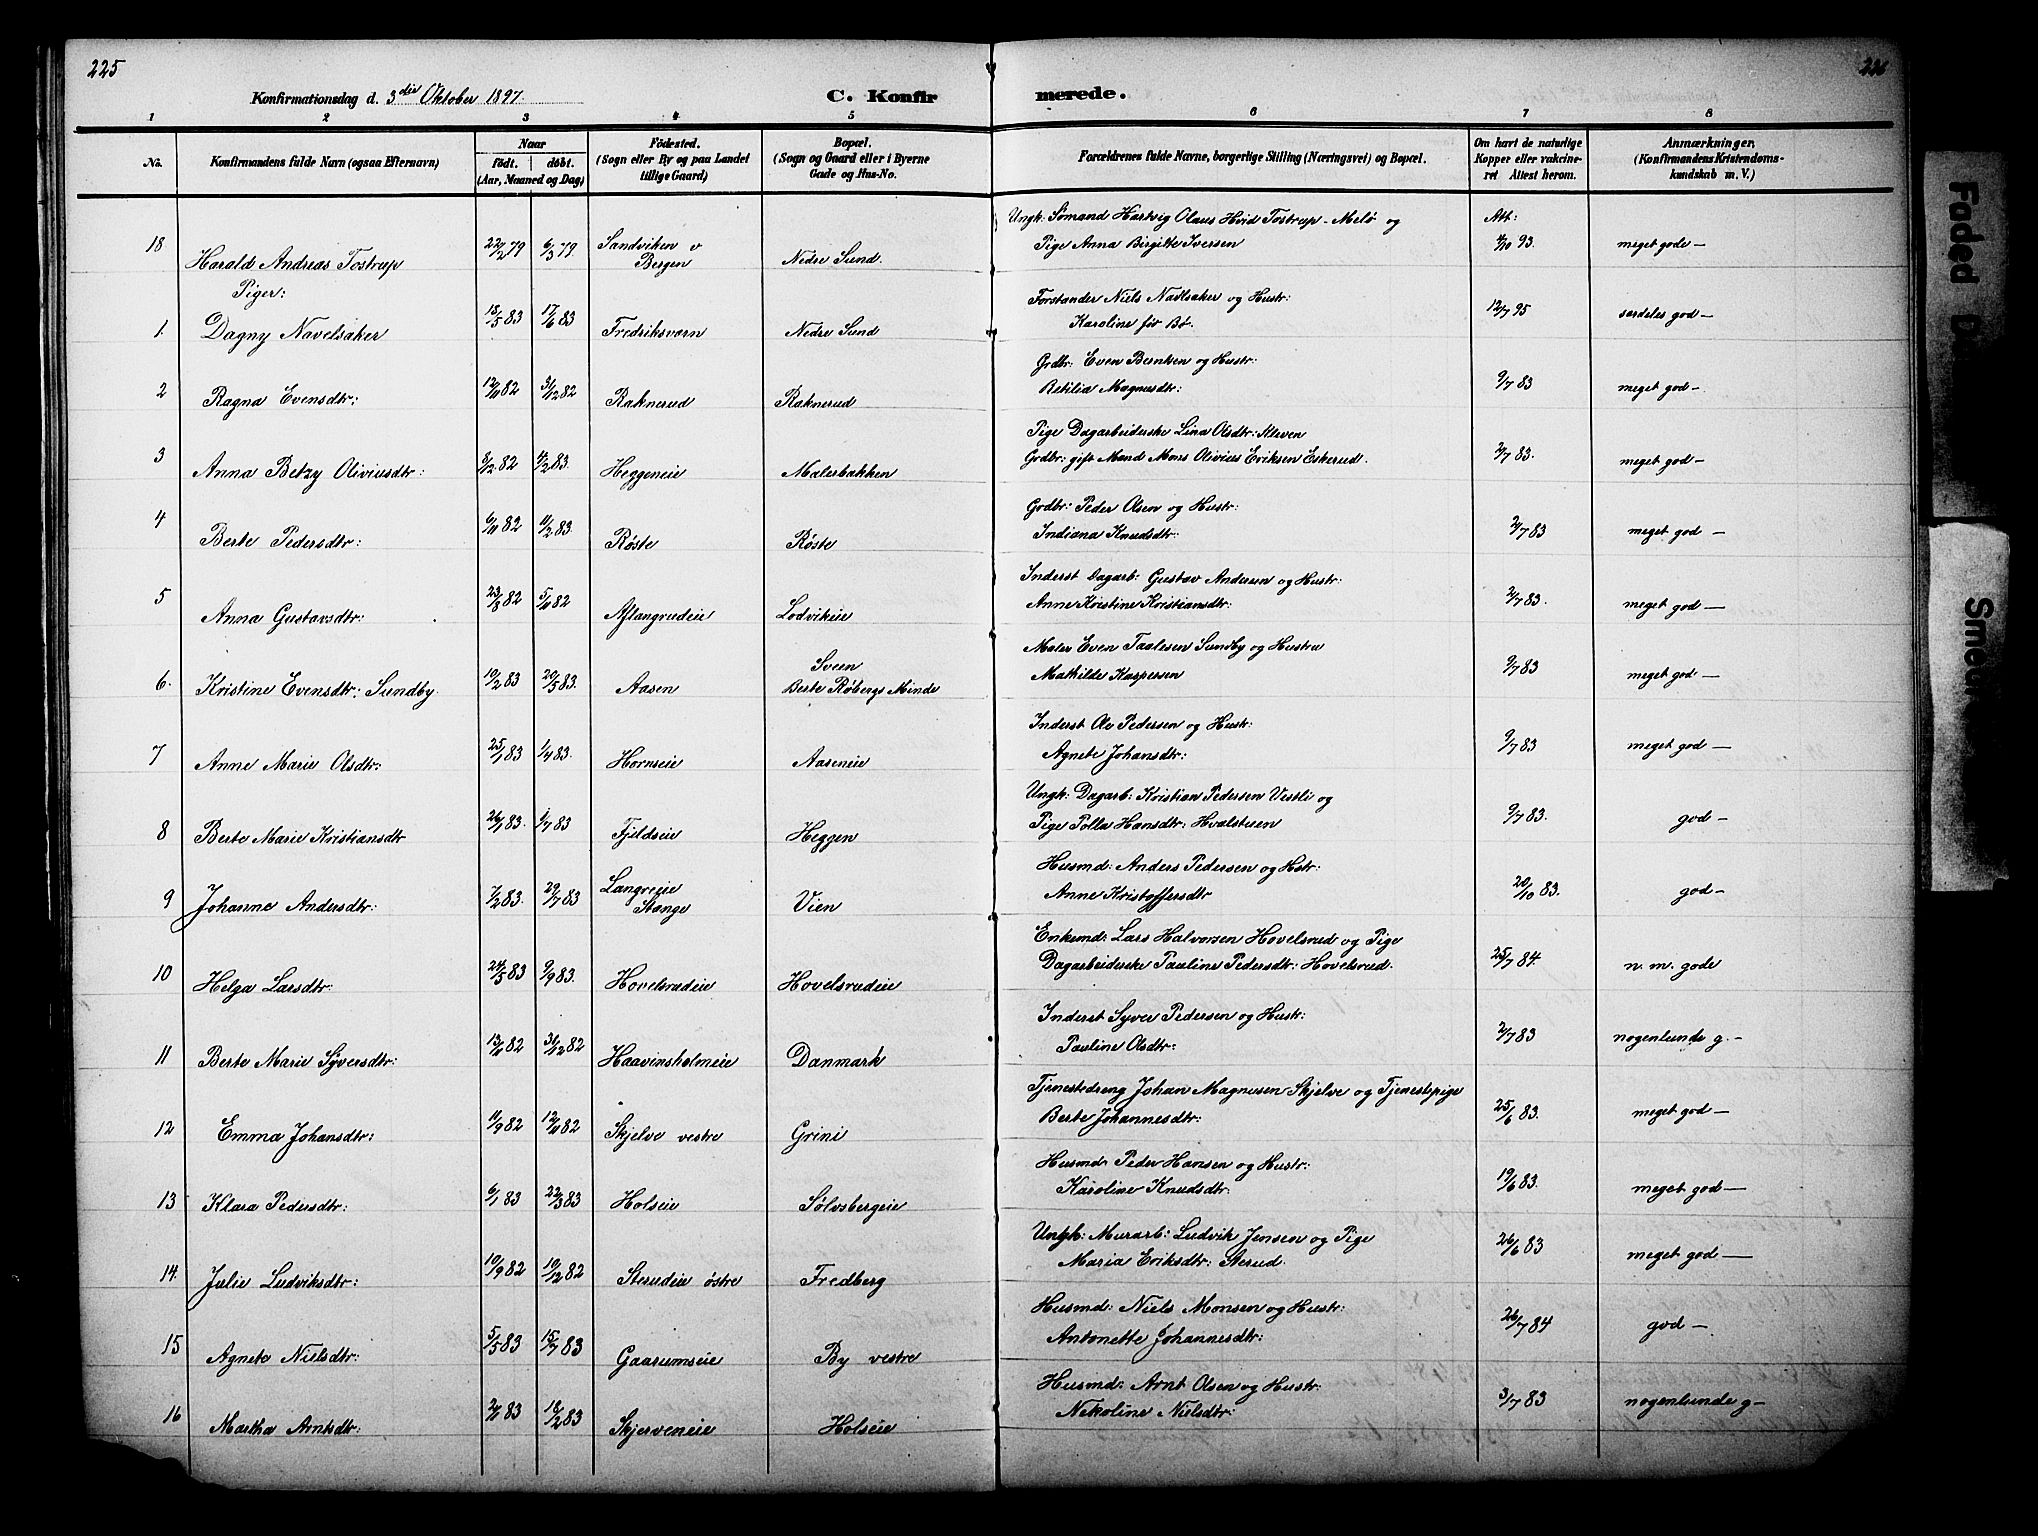 225
226
Konfirmationsdag d. 3die Oktober 1897.
C. Konfirmerede.
1 2 3 4 5 6 7 8
No. Konfirmandens fulde Navn (ogsaa Efternavn) Naar født. døbt. (Aar, Maaned og Dag) Fødested. (Sogn eller By og paa Landet tillige Gaard) Bopæl. (Sogn og Gaard eller i Byerne Gade og Hus-No. Forældrenes fulde Navne, borgerlige Stilling (Næringsvei) og Bopæl. Om havt de naturlige Kopper eller vakcineret Attest herom. Anmærkninger, (Konfirmandens Kristendomskundskab m. V.)
18 Harald Andreas Tostrup 22/2 79 6/3 79. Sandviken v Bergen Nedre Sund. Ungk: Sømand Hartvig Olaus Hvid Tostrup - Melø og Pige Anna Birgitte Iversen Att: 4/10 93. meget gode —
Piger:
1. Dagny Navelsaker 15/5 83 17/6 83 Fredriksværn Nedre Sund Forstander Niels Navlsaker og Hustr: Karoline før Bø. 12/7 95 særdeles god —
2 Ragna Evensdtr: 12/11 82 31/12 82 Raknerud Raknerud Grdbr: Even Berntsen og Hustr: Betilia Magnusdtr: 9/7 83 meget god —
3 Anna Betzy Oliviusdtr: 8/12 82 4/2 83. Heggeneie Malerbakken Pige Dagarbeiderske Lina Olsdtr: Kleven Grdbr: gift Mand Mons Olivius Eriksen Eskerud. 2/7 83. meget god —
4 Berte Pedersdtr: 6/11 82 11/2 83. Røste Røste Grdbr: Peder Olsen og Hustr: Indiana Knudsdtr: 2/7 83 meget god —
5 Anna Gustavsdtr: 23/8 82 5/11 82 Aflangrudeie Lodvikeie Inderst Dagarb: Gustav Andersen og Hustr: Anne Kristine Kristiansdtr: 2/7 83. meget god —
6. Kristine Evensdtr: Sundby. 10/2 83 20/5 83. Aasen Sveen Berte Røbergs Minde Maler Even Taalesen Sundby og Hustru Mathilde Kaspersen 9/7 83 meget god —
7 Anne Marie Olsdtr: 25/1 83 1/4 83. Hornseie Aaseneie Inderst Ole Pedersen og Hustr: Agnete Johansdtr: 9/7 83 meget god —
8 Berte Marie Kristiansdtr 26/1 83. 1/7 83 Fjeldseie Heggen Ungk: Dagarb: Kristian Pedersen Vestli og Pige Polla Hansdtr: Hvalstuen 9/7 83. god —
9 Johanne Andersdtr: 7/2 83. 29/7 83 Langreeie Stange Vien Husmd: Anders Pedersen og Hstr: Anne Kristoffersdtr 20/10 83. god —
10 Helga Larsdtr: 24/5 83 9/9 83. Hovelsrudeie Hovelsrudeie Enkemd: Lars Halvorsen Hovelsrud og Pige Dagarbeiderske Pauline Pedersdtr: Hovelsrud. 25/7 84. n. m. gode
11 Berte Marie Syversdtr: 13/11 82 31/12 82 Haavinsholmeie Danmark Inderst Syver Pedersen og Hustr: Pauline Olsdtr: 2/7 83 nogenlunde g. —
12 Emma Johansdtr: 11/9 82 12/11 82 Skjelve vestre Grini Tjenestedreng Johan Magnusen Skjelve og Tjenestepige Berte Johannesdtr: 25/6 83. meget god —
13 Klara Pedersdtr: 6/1 83 22/3 83 Holseie Sølvsbergeie Husmd: Peder Hansen og Hustr: Karoline Knudsdtr: 19/6 83. meget god —
14. Julie Ludviksdtr: 10/9 82 10/12 82 Sterudeie østre Fredberg Ungk: Murarb: Ludvik Jensen og Pige Maria Eriksdtr: Sterud. 26/6 83 meget god —
15 Agnete Nielsdtr: 5/5 83 15/7 83 Gaarumseie By vestre Husmd: Niels Monsen og Hustr: Antonette Johannesdtr: 26/7 84 god —
16 Martha Arntsdtr: 2/1 83 18/2 83 Skjerveneie Holseie Husmd: Arnt Olsen og Hustr: Nekoline Nielsdtr: 3/7 83 nogenlunde g —
Faded D
Sme